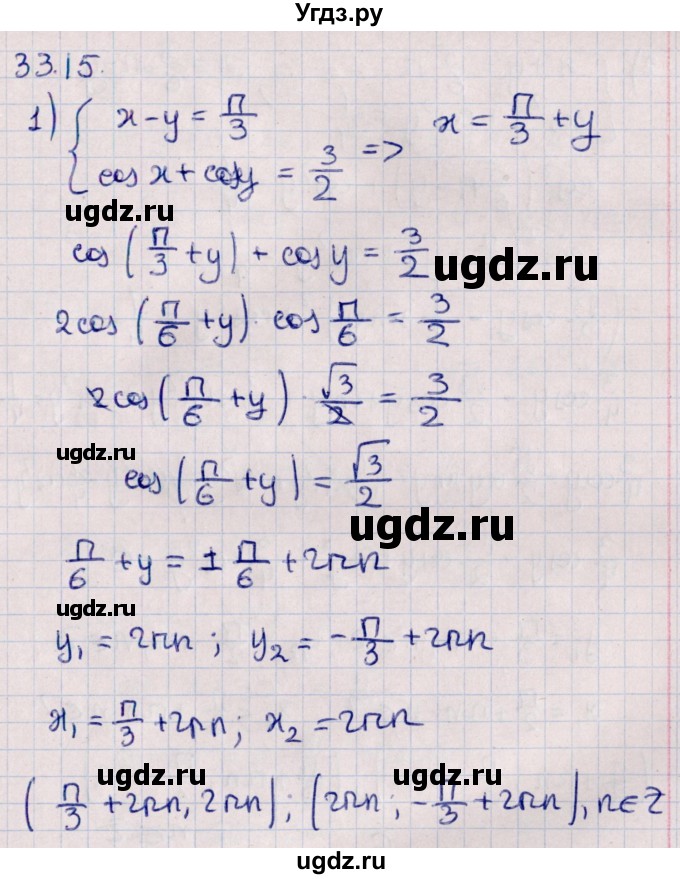 Угдз.ру
33.15.
1) { x - y = П/3
cos x + cos y = 3/2 => x = П/3 + y
ugdz.ru
cos (П/3 + y) + cos y = 3/2
ugdz.ru
2cos (П/6 + y) · cos П/6 = 3/2
2cos (П/6 + y) · √3/2 = 3/2
ugdz.ru
cos (П/6 + y) = √3/2
ugdz.ru
П/6 + y = ± П/6 + 2Пn
ugdz.ru
y₁ = 2Пn ; y₂ = - П/3 + 2Пn
x₁ = П/3 + 2Пn ; x₂ = 2Пn
ugdz.ru ugdz.ru
( П/3 + 2Пn, 2Пn) ; (2Пn ; - П/3 + 2Пn), n ∈ Z
ugdz.ru